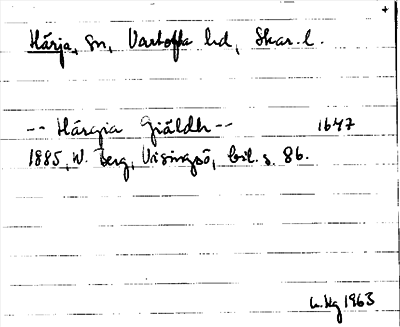 +
Härja, sn, Vartofta hd, Skar. l.
-- Härgia Giäldh -- 1647
1885, W. Berg, Visingsö, bil. s. 86.
1963